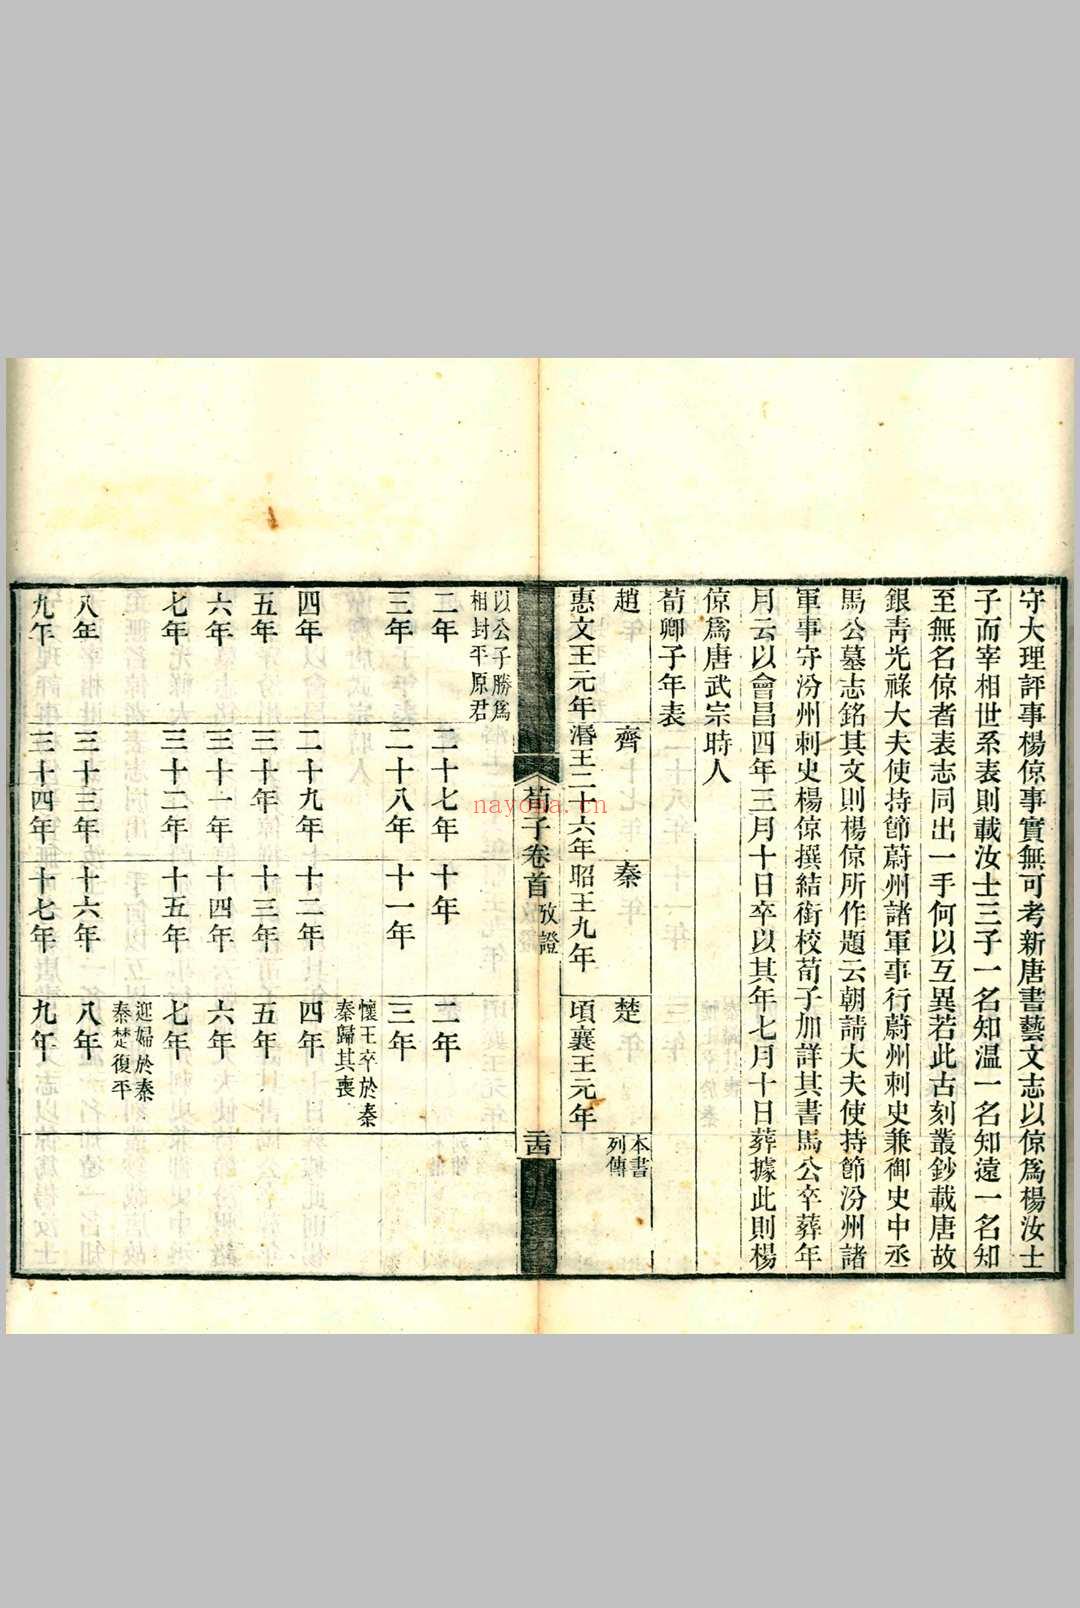 守大理評事楊倞事實無可考新唐書藝文志以倞爲楊汝士
子而宰相世系表則載汝士三子一名知温一名知遠一名知
至無名倞者表志同出一手何以互異若此古刻叢鈔載唐故
銀靑光祿大夫使持節蔚州諸軍事行蔚州刺史兼御史中丞
馬公墓志銘其文則楊倞所作題云朝請大夫使持節汾州諸
軍事守汾州刺史楊倞撰結銜校荀子加詳其書馬公卒葬年
月云以會昌四年三月十日卒以其年七月十日葬據此則楊
倞爲唐武宗時人
荀卿子年表
趙 齊 秦 楚 本書列傳
惠文王元年 湣王二十六年 昭王九年 頃襄王元年
荀子卷首 攷證 二十四
以公子勝爲
相封平原君
二年 二十七年 十年 二年
三年 二十八年 十一年 三年
懷王卒於秦
秦歸其喪
四年 二十九年 十二年 四年
五年 三十年 十三年 五年
六年 三十一年 十四年 六年
七年 三十二年 十五年 七年
迎婦於秦
秦楚復平
八年 三十三年 十六年 八年
九年 三十四年 十七年 九年
nayona.cn